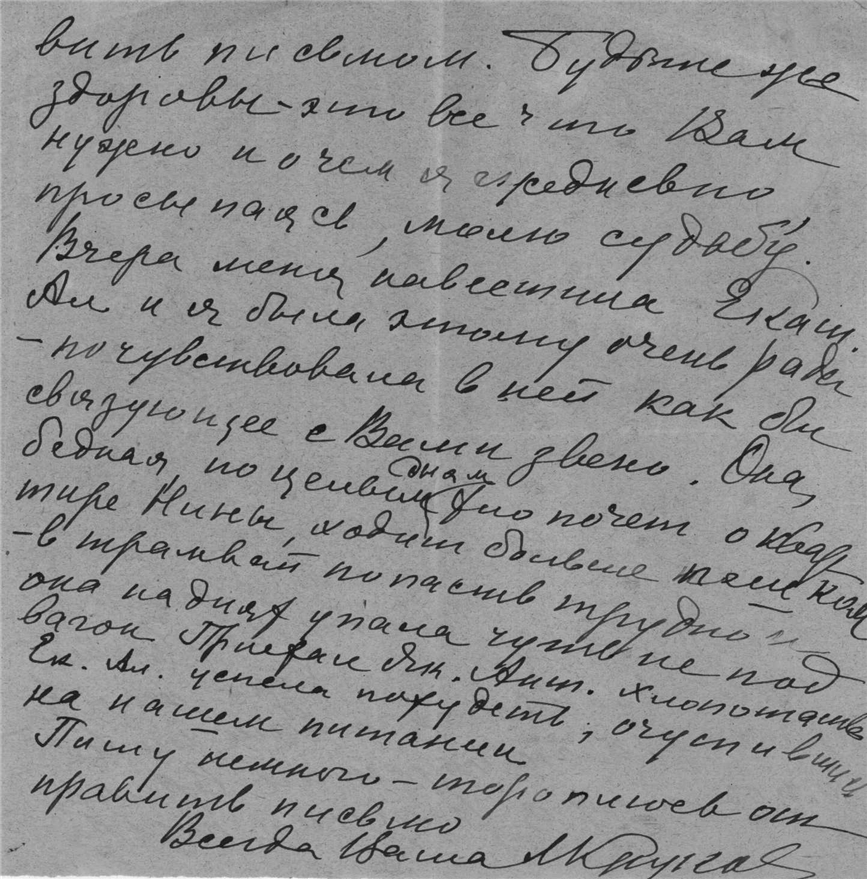 вить письмом. Будьте же
здоровы – это все что Вам
нужно и о чем я ежедневно,
просыпаясь, молю судьбу.
Вчера меня навестила Екат.
Ал. и я была этому очень рада
– почувствовала в ней как бы
связующее с Вами звено. Она,
бедная, по целым дням хлопочет о квар
тире Нины, ходит больше пешком
– в трамвай попасть трудно и
она на днях упала чуть не под
вагон Приехал Як. Ант. хлопотать
Ек. Ал. успела похудеть, очутившись
на нашем питании
Пишу немного – тороплюсь от
править письмо
Всегда Ваша